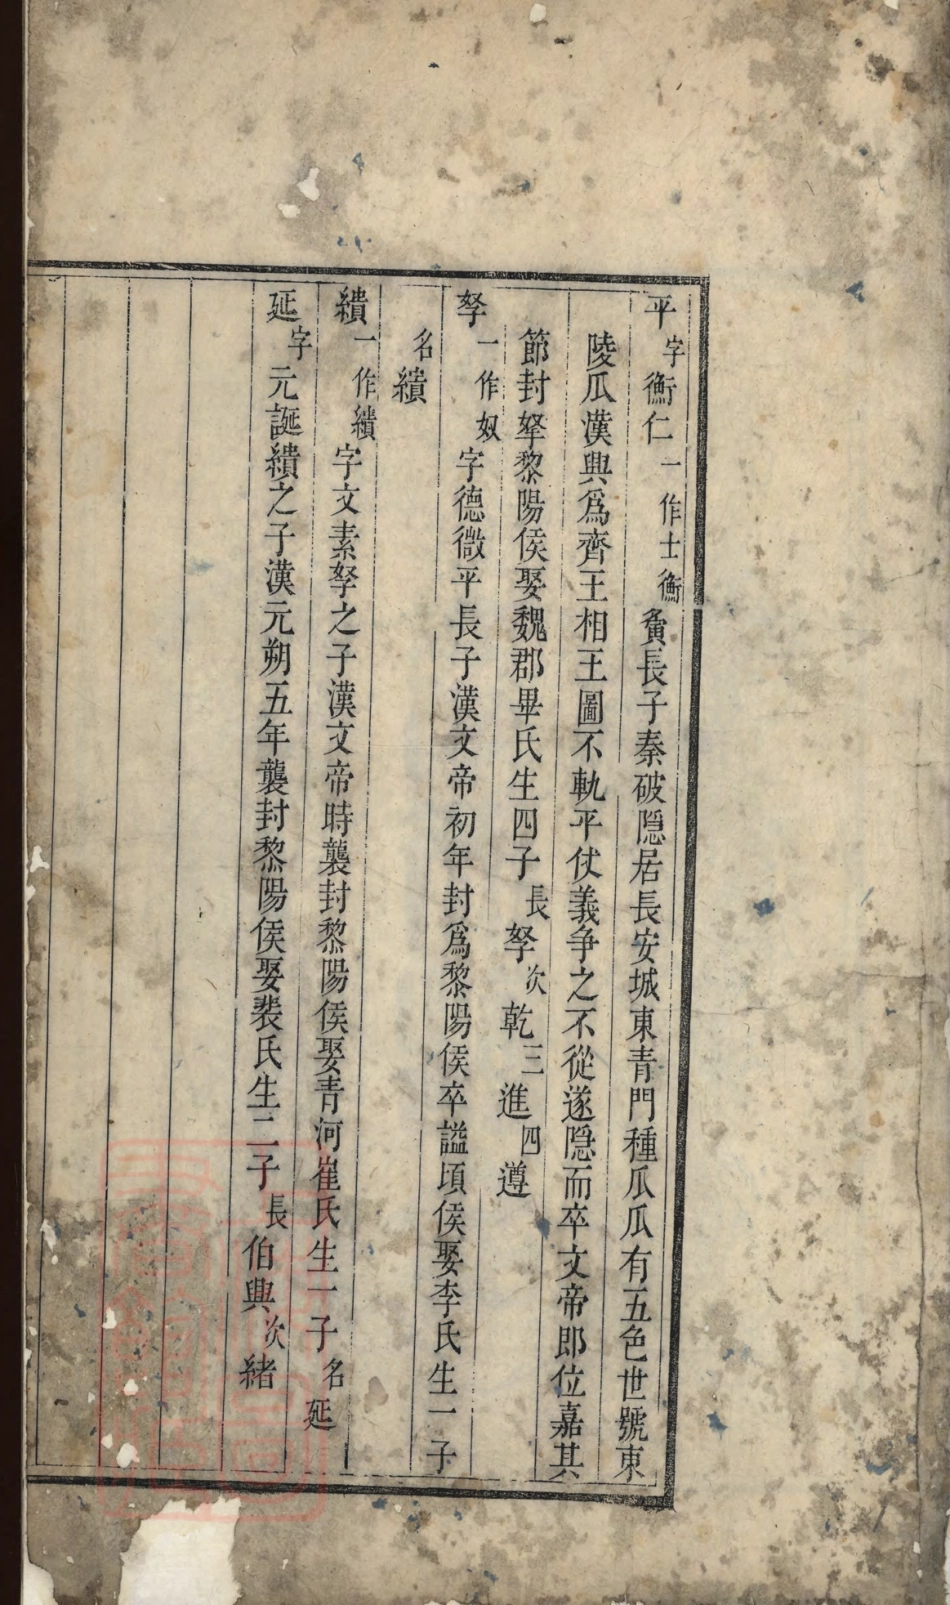 平字衡仁一作士衡賔長子秦破隠居長安城東青門種瓜瓜有五色世號東
陵瓜漢興爲齊王相王圖不軌平仗義争之不從遂隠而卒文帝即位嘉其
節封拏黎陽侯娶魏郡畢氏生四子長孥次乾三進四遵
孥一作奴字德微平長子漢文帝初年封爲黎陽侯卒諡頃侯娶李氏生一子
名繢
繢一作績字文素孥之子漢文帝時襲封黎陽侯娶青河崔氏生一子名延
延字元誕繢之子漢元朔五年襲封黎陽侯娶裴氏生二子長伯興次緒